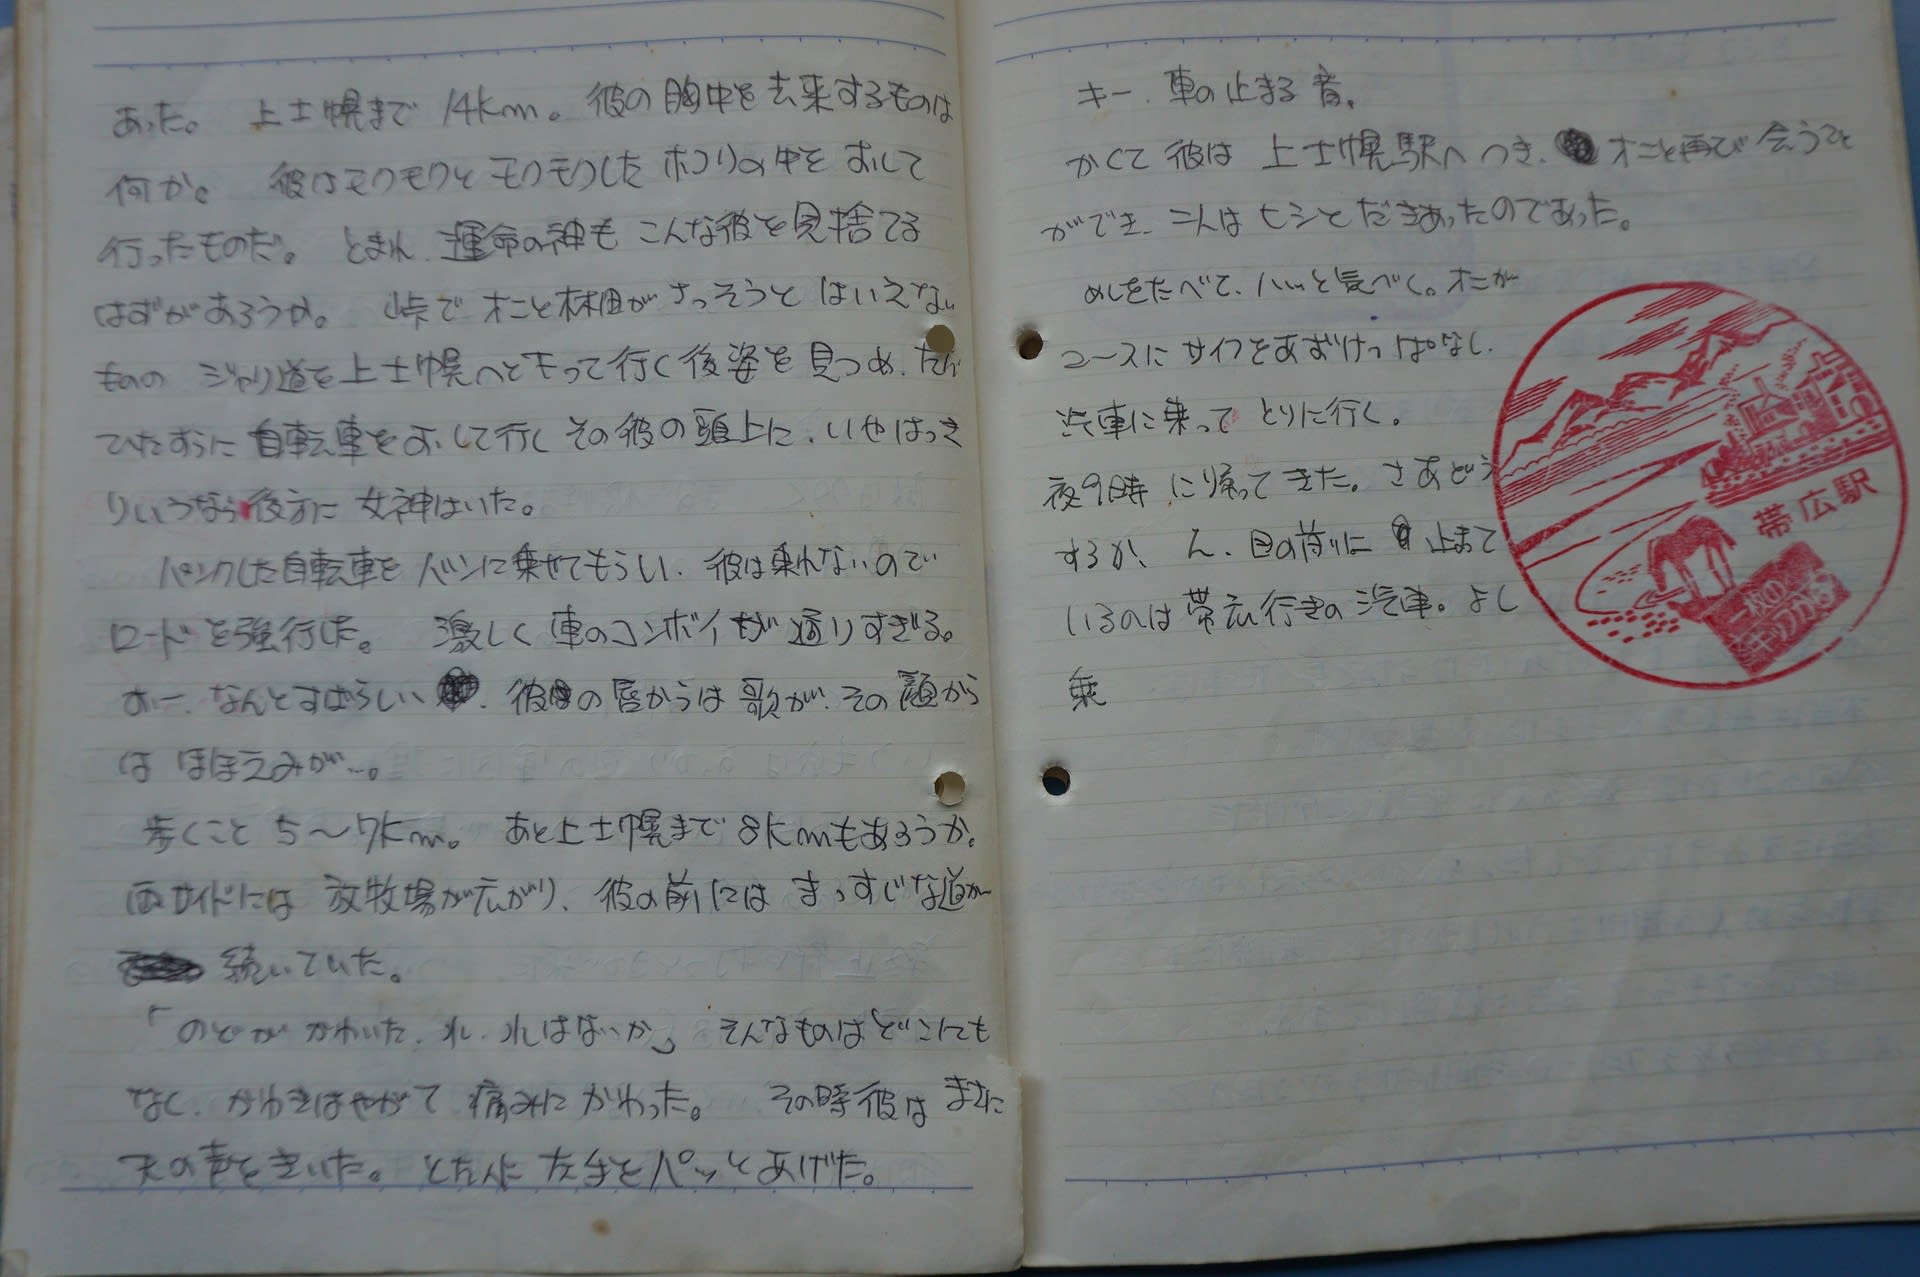 あった。 上士幌まで 14km。 彼の胸中を去来するものは
何か。 彼はモクモクと モクモクした ホコリの中を おして
行ったものだ。 とまれ、運命の神も こんな彼を見捨てる
はずがあろうか。 峠で オニと林田が さっそうと はいえない
ものの ジャリ道を上士幌へと下って行く後姿を 見つめ、ただ
ひたすらに 自転車をおして行く その彼の頭上に、いやはっき
りいうなら後方に 女神はいた。
パンクした自転車を バンに乗せてもらい、彼は乗れないので
ロードを強行した。 激しく 車のコンボイが 通りすぎる。
おー、なんとすばらしい、彼の唇からは 歌が、その顔から
は ほほえみが…。
歩くこと 5〜7km。 あと上士幌まで 8kmもあろうか。
両サイドには 放牧場が広がり、彼の前には まっすじな道が
続いていた。
「のどが かわいた、れ、れはないか」 そんなものはどこにも
なく、かわきはやがて 痛みに かわった。 その時彼は まさに
天の声を きいた。 とたんに 左手を パッと あげた。
キー、車の止まる 音。
かくて 彼は 上士幌駅へ つき、オニと再び 会うこと
ができ、二人は ヒシと だきあったのであった。
めしをたべて、ハッと気づく。オニが
ユースに サイフを あずけっぱなし、
汽車に乗って とりに行く。
夜9時 に帰ってきた。さあどう
するか、ん、目の前に 止まて
いるのは 帯広行きの 汽車。よし
乗
帯広駅